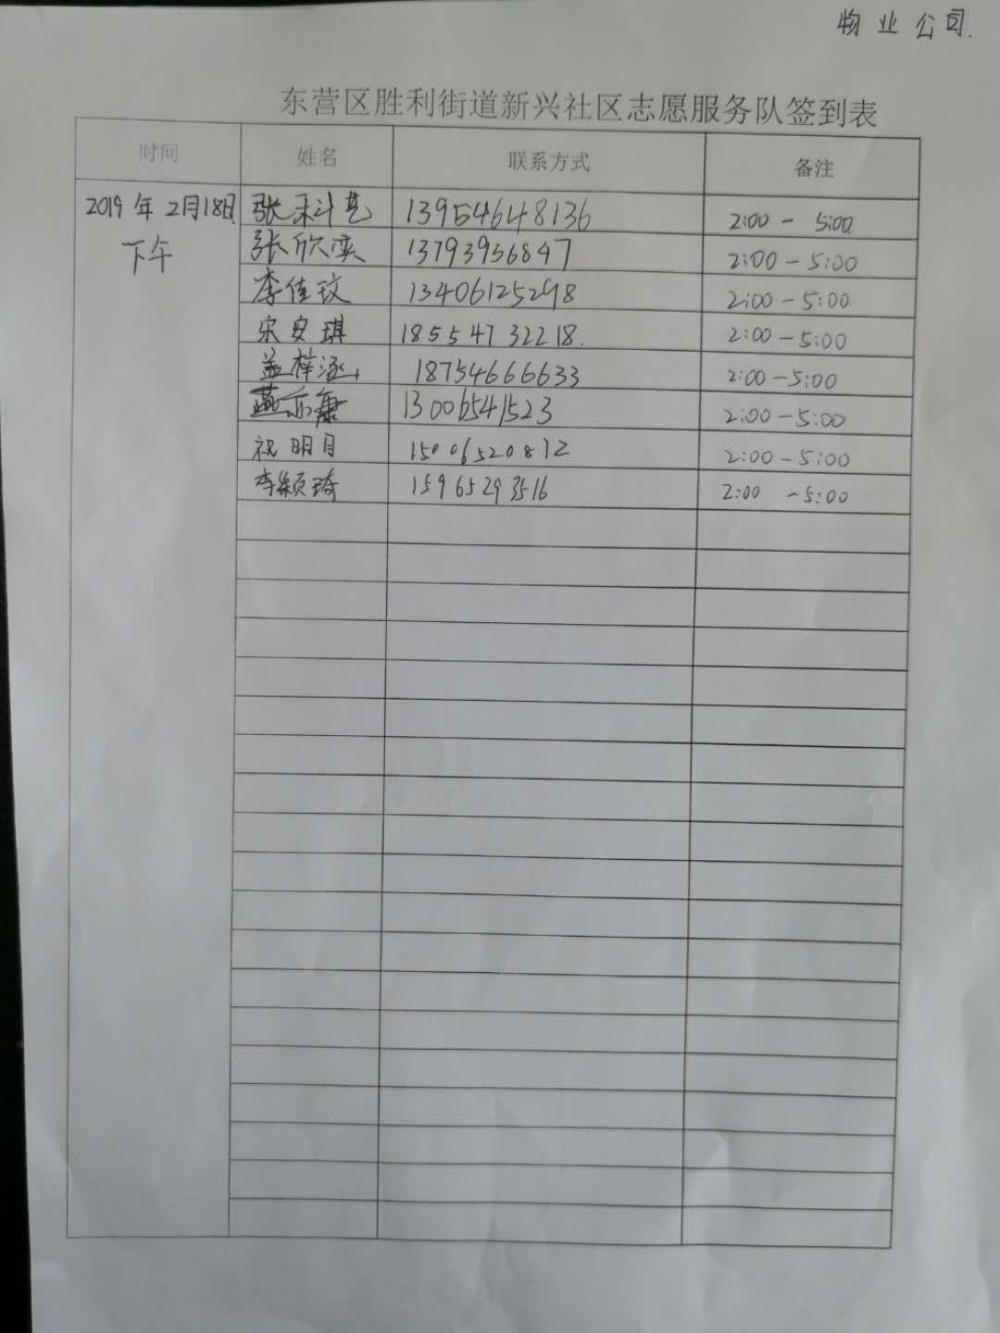 物业公司.
东营区胜利街道新兴社区志愿服务队签到表
时间 姓名 联系方式 备注
2019年2月18日 张禾斗艺 13954648136 2:00 - 5:00
下午 张欣奕 13793956847 2:00 - 5:00
李佳玟 13406125298 2:00 - 5:00
宋安琪 18554732218. 2:00 - 5:00
盖梓涵 18754666633 2:00 - 5:00
燕亦康 13006541523 2:00 - 5:00
祝明月 15006520812 2:00 - 5:00
李颖琦 15965293516 2:00 - 5:00